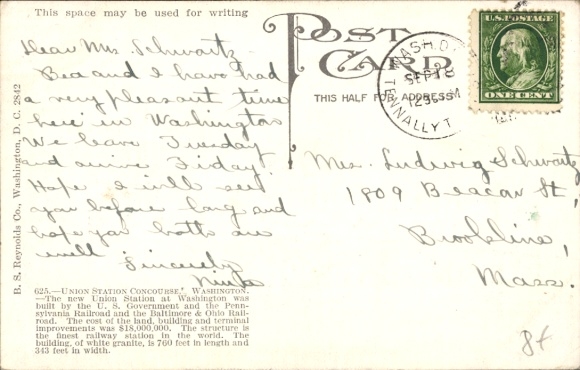 This space may be used for writing
POST CARD
THIS HALF FOR ADDRESS
WASH. D.
SEP 18
TENNALLYT
U.S. POSTAGE
ONE CENT
Dear Mrs. Schwartz
Bea and I have had
a very pleasant time
here in Washington
We leave Tuesday
and arrive Friday.
Hope I will see
you before long and
hope you both are
well Sincerely
Mrs. Ludwig Schwartz
1809 Beacon St,
Brookline,
Mass.
B. S. Reynolds Co., Washington, D. C. 2842
625.—UNION STATION CONCOURSE, WASHINGTON.
—The new Union Station at Washington was
built by the U. S. Government and the Penn-
sylvania Railroad and the Baltimore & Ohio Rail-
road. The cost of the land, building and terminal
improvements was $18,000,000. The structure is
the finest railway station in the world. The
building, of white granite, is 760 feet in length and
343 feet in width.